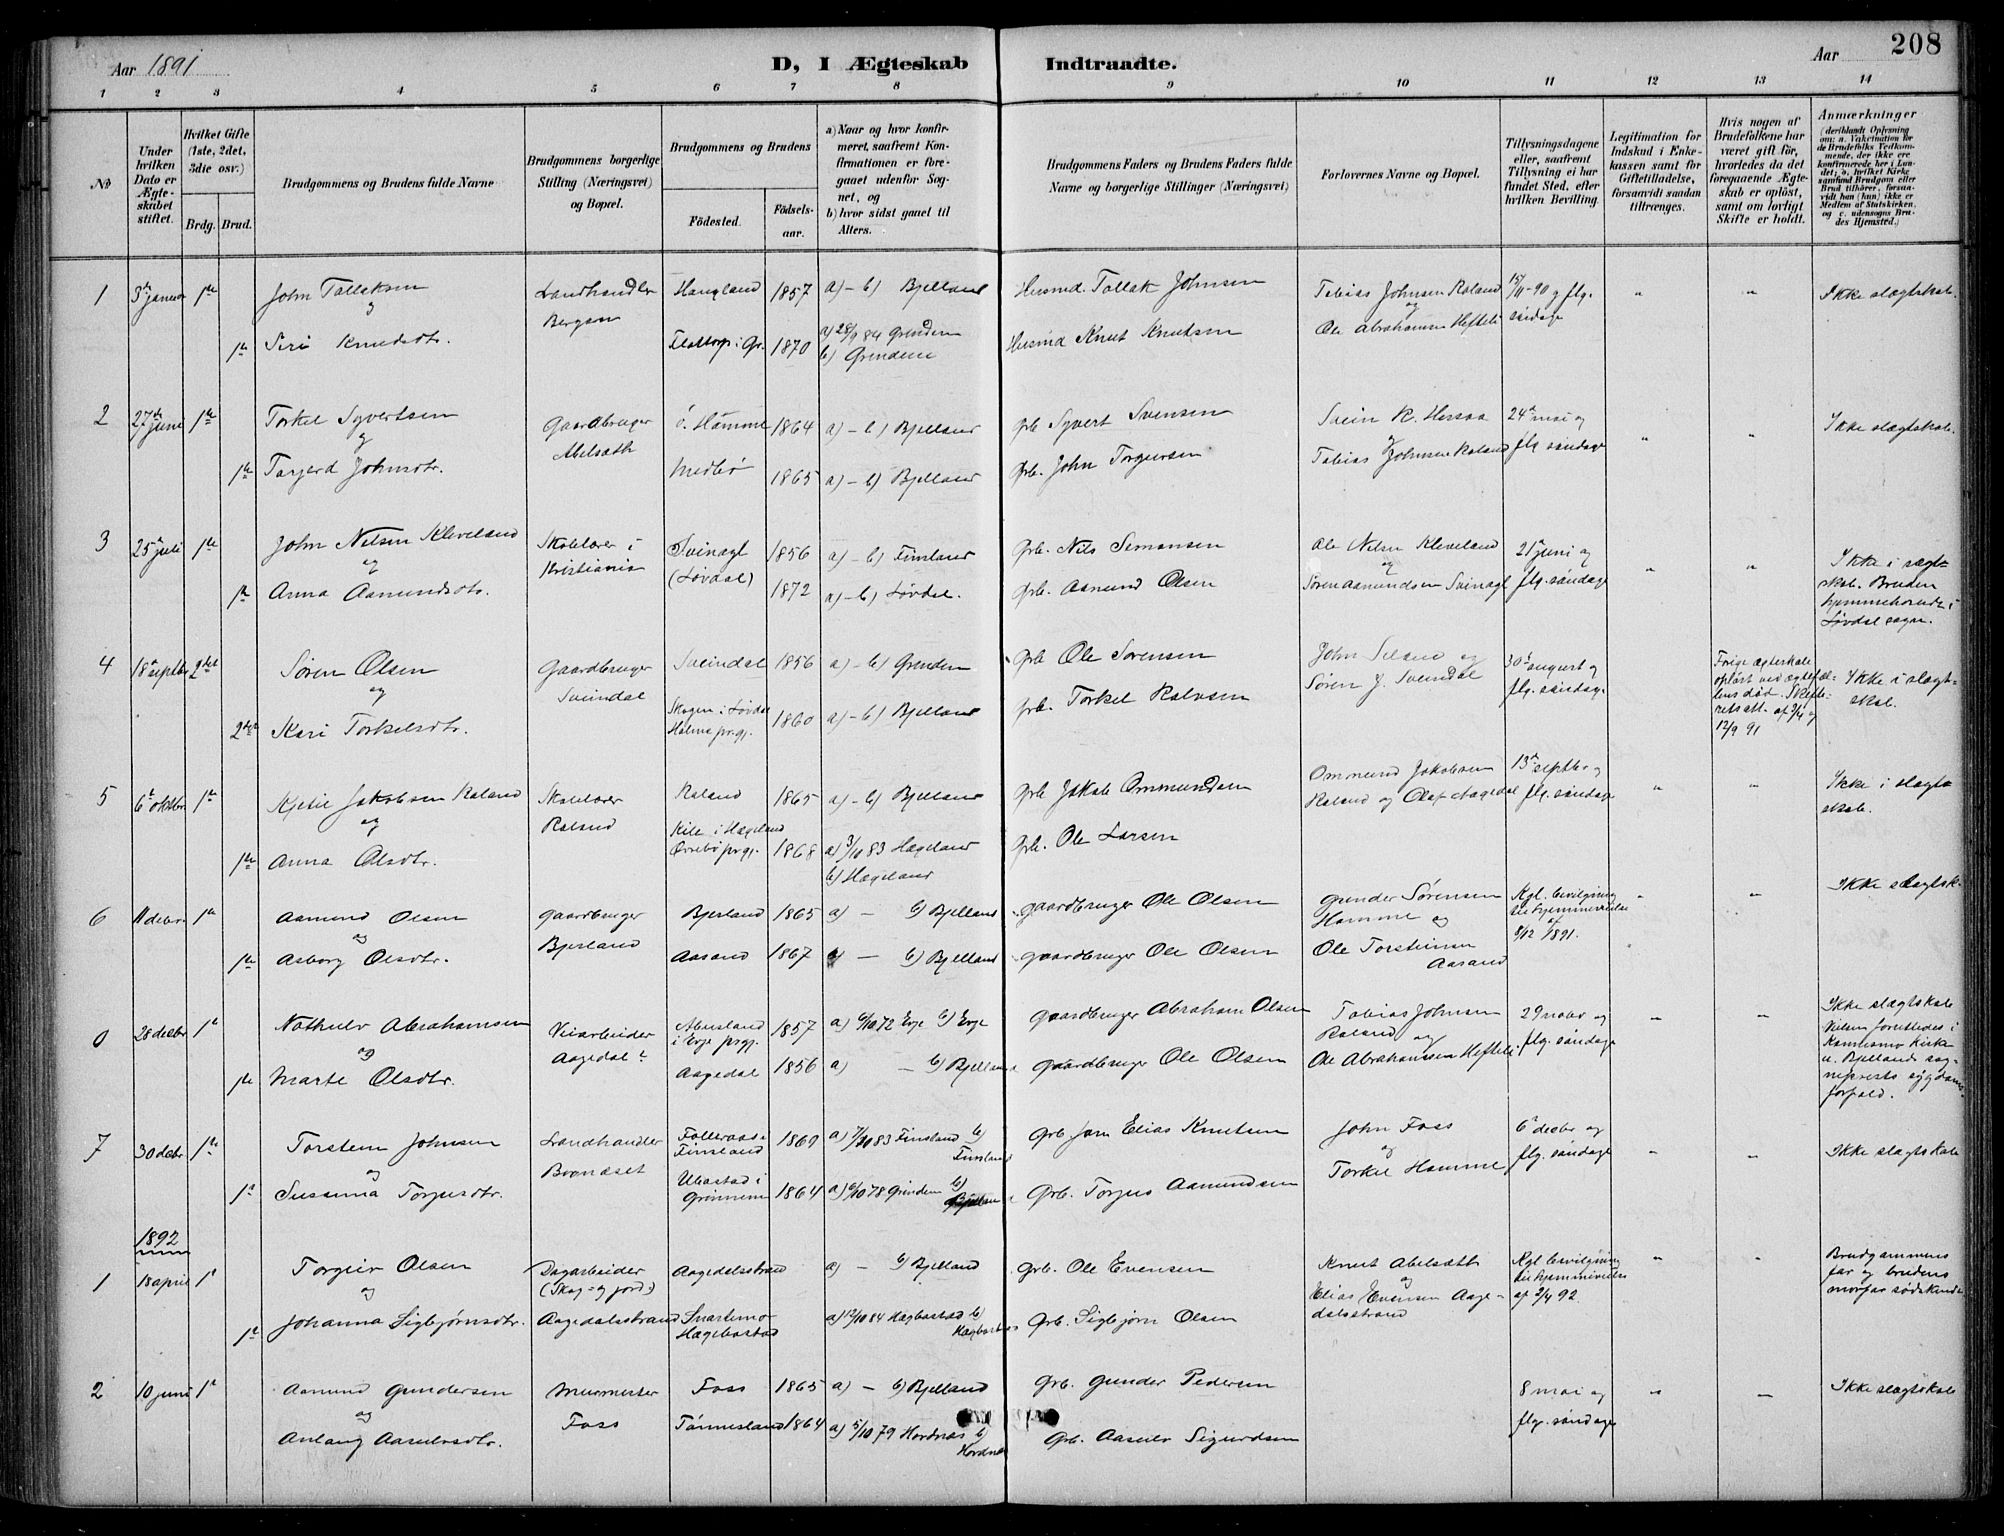 208
Aar 1891
D, I Ægteskab Indtraadte.
Aar
1 2 3 4 5 6 7 8 9 10 11 12 13 14
No
Under hvilken Dato er Ægteskabet stiftet.
Hvilket Gifte (1ste, 2det, 3die osv.)
Brdg. Brud.
Brudgommens og Brudens fulde Navne
Brudgommens borgerlige Stilling (Næringsvei) og Bopæl.
Brudgommens og Brudens
Födested.
Födsels-aar.
a) Naar og hvor konfirmeret, saafremt Konfirmationen er foregaaet udenfor Sognet, og
b) hvor sidst gaaet til Alters.
Brudgommens Faders og Brudens Faders fulde Navne og borgerlige Stillinger (Næringsvei)
Forlovernes Navne og Bopæl.
Tillysningsdagene eller, saafremt Tillysning ei har fundet Sted, efter hvilken Bevilling.
Legitimation for Indskud i Enkekassen samt for Giftetilladelse, forsaavidt saadan tiltrænges.
Hvis nogen af Brudefolkene har været gift för, hvorledes da det foregaaende Ægteskab er oplöst, samt om lovligt Skifte er holdt.
Anmærkninger
1 3die januar 1ste John Tollaksen Landhandler Haugland 1857 a) - b) Bjelland Husmd. Tollak Johnsen Tobias Johnsen Røland 15/11-90 og flg. " " Ikke slægtskab.
og Bergsen og søndage
1ste Siri Knudsdtr. Flottorp i Gr. 1870 a) 28/9 84 Grendem Husmd Knut Knutsen Ole Abrahamsen Heftelø
b) Grendem
2 27de juni 1ste Torkel Syvertsen Gaardbruger ö. Hamme 1864 a) - b) Bjelland Grb Syvert Svensen Svein K. Hessaa 24de mai og " " Ikke slægtskab.
og Abelsæth og flg søndage
1ste Torjerd Johnsdtr. Medbø 1865 a) - b) Bjelland Grb. John Torgiersen Tobias Johnsen Røland
3 25de juli 1ste John Nilsen Kleveland Skolelærer i Svinagl 1856 a) - b) Finsland Grb. Nils Simonsen Ole Nilsen Kleveland 21de juni og " " Ikke i slægt-
og Kristiania (Løvdal) og flg. søndage skab. Bruden
1ste Anna Aamundsdtr. 1872 a) - b) Løvdal. Grb. Aamund Olsen Søren Aamundsen Svinagl hjemmehørende i
Løvdal sogn.
4 18de septbr 2det Søren Olsen Gaardbruger Sveindal 1856 a) - b) Grendem Grb Ole Sørensen John Seland og 30te august og Forige ægteskab Ikke i slægt-
og Sveindal Søren J. Sveindal flg. søndage opløst ved ægtefæl- skab.
2det Kari Torkelsdtr. Skogen i Løvdal 1860 a) - b) Bjelland Grb. Torkel Rolvsen lens død. Skifte-
Holme prgj. retsatt. af 9/4 og
12/9 91
5 6te oktbr 1ste Kjetil Jakobsen Røland Skolelærer Røland 1865 a) - b) Bjelland Grb Jakob Ommundsen Ommund Jakobsen 13de septbr og " " Ikke i slægt-
og Røland Kile i Hægeland Røland og Olaf Aagedal flg. søndage skab.
1ste Anna Olsdtr. Øvrebø prgj. 1868 a) 3/10 83 Hægeland Grb. Ole Larsen
b) Hægeland
6 11 decbr 1ste Aamund Olsen Gaardbruger Bjerland 1865 a) - b) Bjelland Gaardbruger Ole Olsen Gunder Sørensen Kgl. bevilgning " " Ikke slægtsk.
og Bjerland Hamme og til hjemmevielse
1ste Asborg Olsdtr. Aasand 1867 a) - b) Bjelland Gaardbruger Ole Olsen Ole Torsteinsen af 8/12 1891.
Aasand
0 28 decbr 1ste Nathulv Abrahamsen Veiarbeider Abusland 1857 a) 6/10 72 Evje b) Evje Gaardbruger Abraham Olsen Tobias Johnsen 29 nobr og " " Ikke slægtskab
og Aagedal i Evje prgj. Røland og flg. søndage Vielsen forrettedes i
1ste Marte Olsdtr. Aagedal 1856 a) - b) Bjelland Gaardbruger Ole Olsen Ole Abrahamsen Heftelø Konsmo Kirke
u. Bjellands sog-
neprests sygdoms-
forfald.
7 30 decbr 1ste Torstein Johnsen Landhandler Folleraas i 1869 a) 7/10 83 Finsland b) Finsland Grb John Elias Knutsen John Foss 6te decbr og " " Ikke slægtskab
og Brandset Finsland og flg. søndage
1ste Sussanna Torgusdtr. Ubostad i 1864 a) 6/10 78 Grindem b) Bjelland Grb. Torgus Aamundsen Torkel Hamme
Grønnem
1892
1 18 april 1ste Torgeir Olsen Dagarbeider Aagedalsstrand a) - b) Bjelland Grb. Ole Evensen Knut Abelsæth Kgl bevilgning " " Brudgommens
og (Skog- og jord-) og til hjemmevielse far og brudens
1ste Johanna Sigbjørnsdtr. Aagedalsstrand Snartemo Hægebostad a) 12/10 84 Hægbostad b) Hægbostad Grb. Sigbjørn Olsen Elias Evensen Aage- af 2/4 92. morfar sødskende
dalsstrand
2 10 juni 1ste Aamund Gundersen Murmester Foss 1865 a) - b) Bjelland Grb. Gunder Pedersen 8 mai og " — Ikke slægtskab
og Foss flg. søndage
Anlaug Aasulvsdtr. Tønnesland 1864 a) 5/10 79 Hordnæs b) Hordnæs Grb. Aasulv Sigurdsen